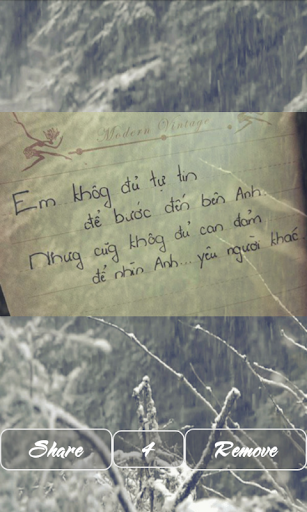 Modern Vintage
Em khôg đủ tự tin
để bước đến bên Anh..
Nhưg cũg khôg đủ can đảm
để nhìn Anh... yêu người khác
Share
4
Remove